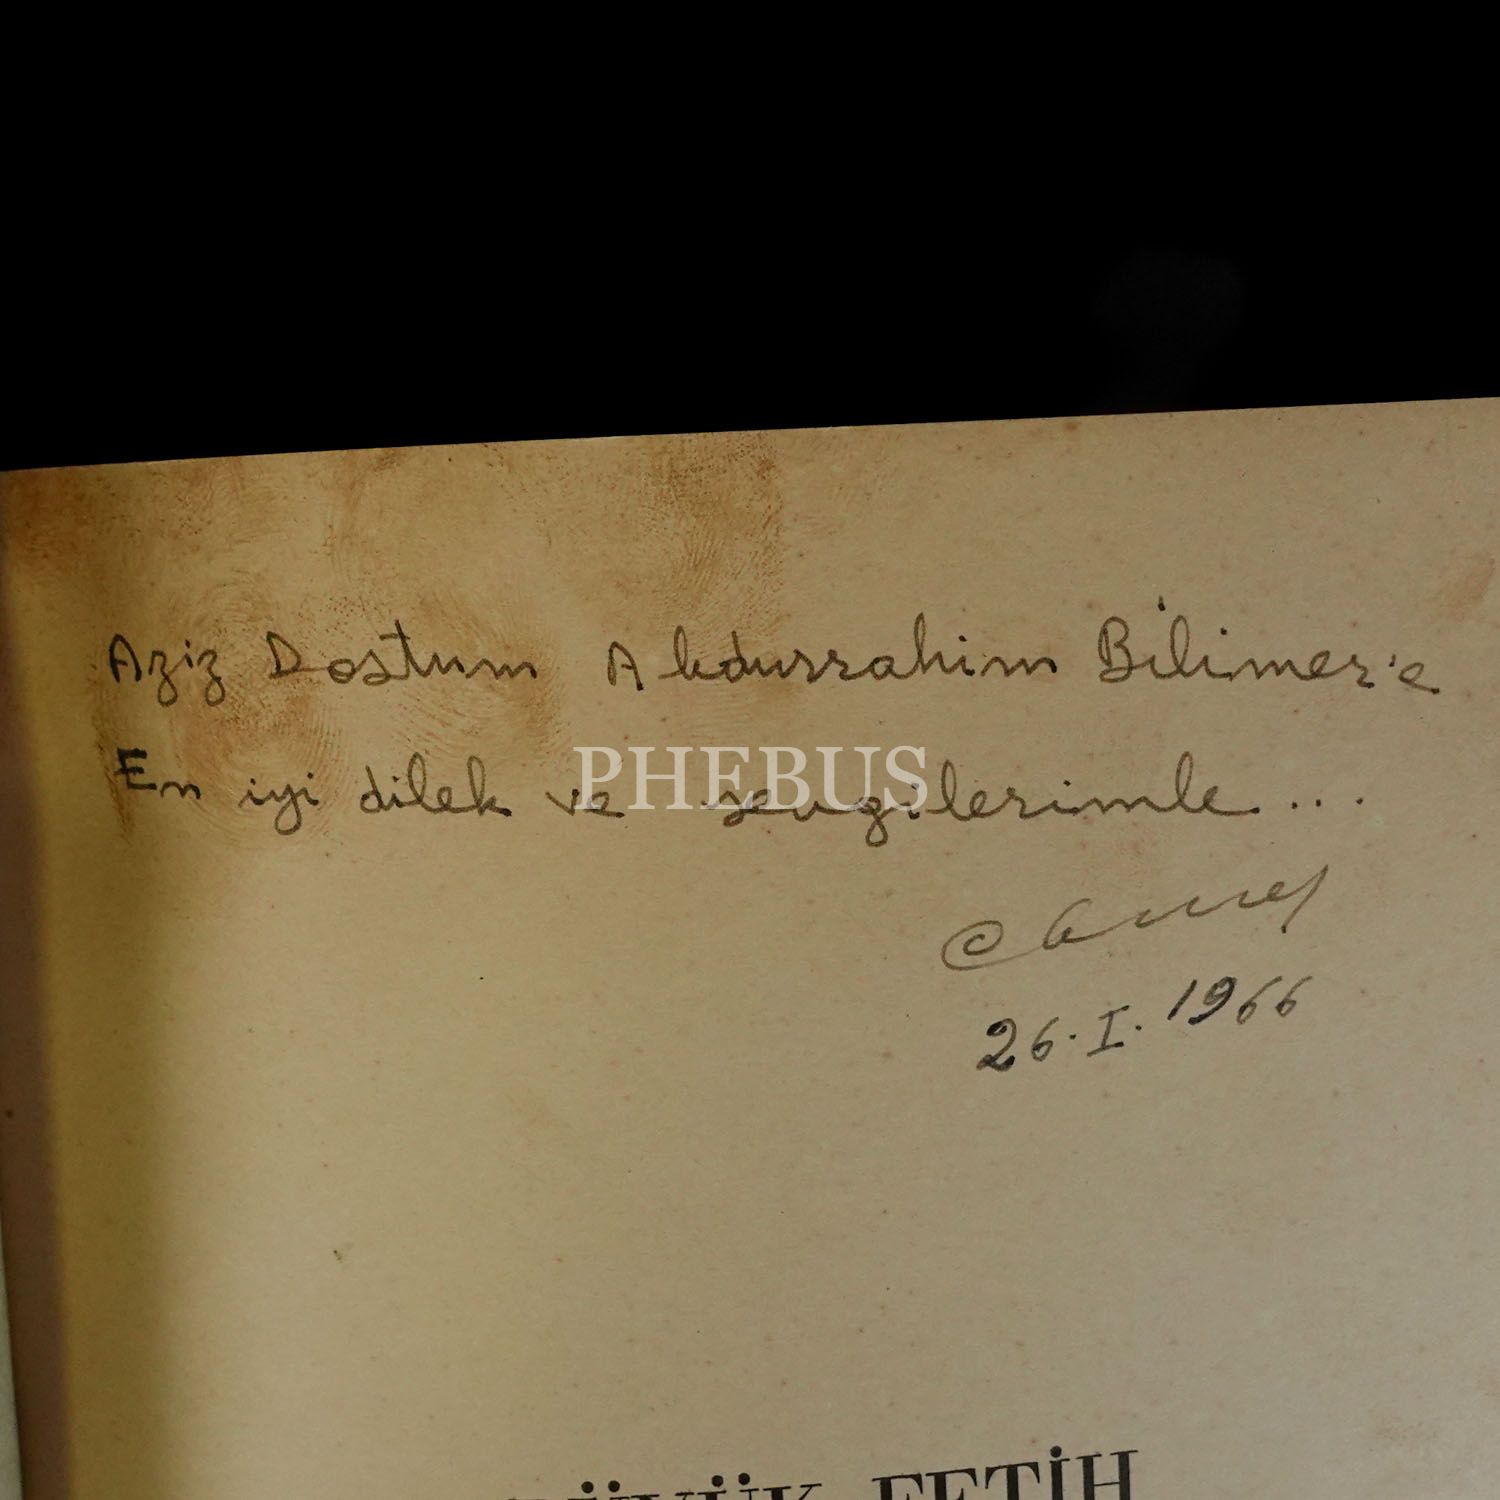 Aziz Dostum Abdurrahim Bilimer'e
En iyi dilek ve sevgilerimle...
PHEBUS
26.I.1966
BÜYÜK FETİH